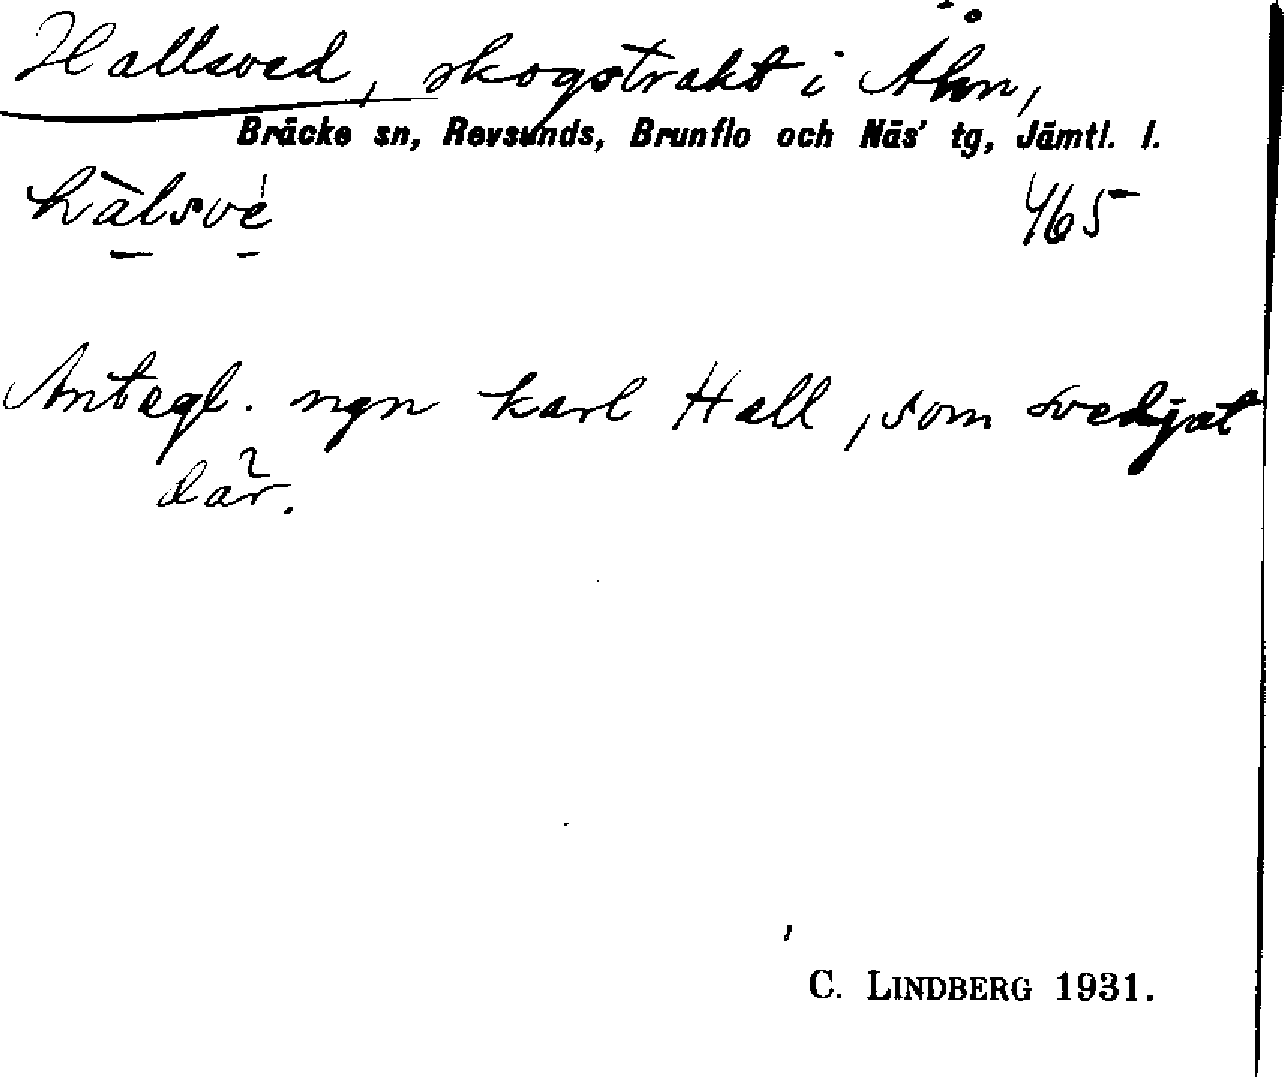 Hallsved, skogstrakt i Åhn,
Bräcke sn, Revsunds, Brunflo och Näs' tg, Jämtl. l.
hàlsvé 465
Antagl. ngn karl Hall, som svedjat
där.
C. LINDBERG 1931.